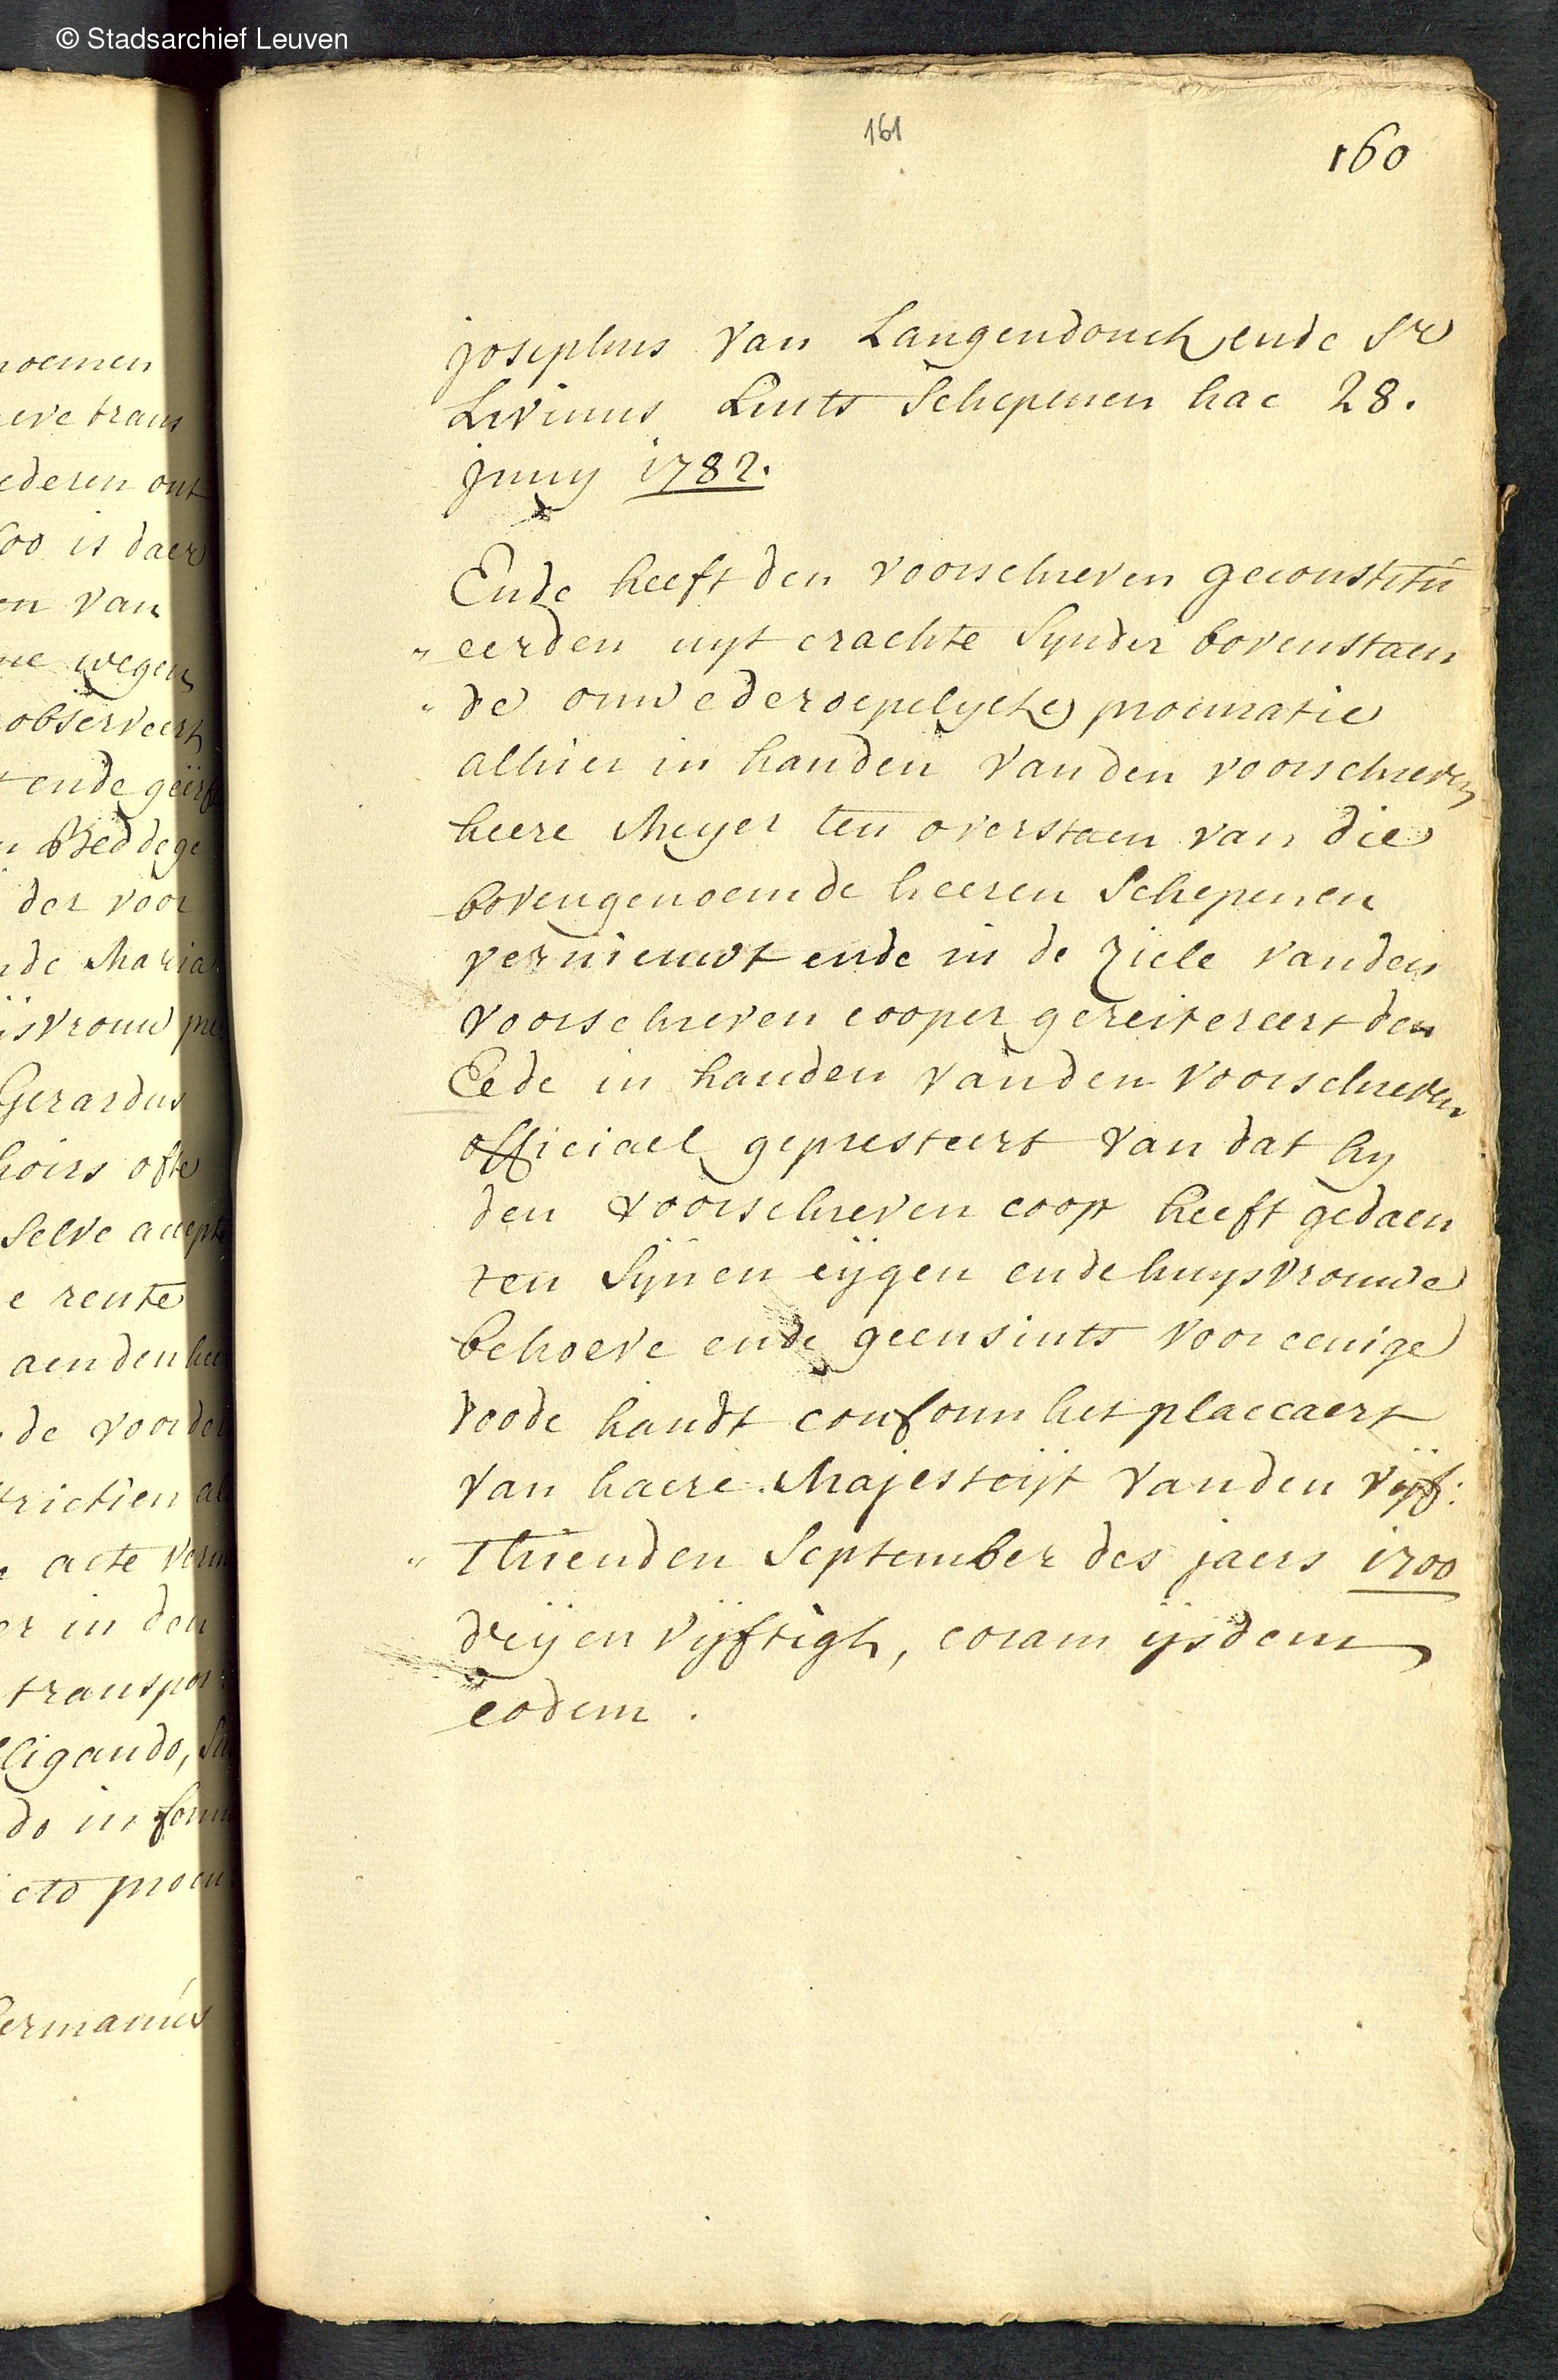 © Stadsarchief Leuven
161
160
noemen
eve trans
ederen ont
soo is daer
en van
me wegen
observeert
ende geërft
Beddege
der voor
nde Maria
isvrouw
Gerardus
hoirs ofte
selve accepte
e rente
aenden
de voor
rictien al
acte
er in den
transpor
lligando,
do in
cto
Germanus
josephus Van Langendonck ende Sr
Livinus Lints Schepenen hac 28.
junij 1782.
Ende heeft den voorschreven geconstitu
„ eerden uyt crachte Synder bovenstaen
„ de onwederoepelycke procuratie
alhier in handen vanden voorschreven
heere Meyer ten overstaen van die
bovengenoemde heeren Schepenen
vernieuwt ende in de ziele vanden
voorschreven cooper gereitereert den
Eede in handen vanden voorschreven
officiael gepresteert van dat hy
den voorschreven coop heeft gedaen
ten Synen eygen ende huysvrouwe
behoeve ende geensints voor eenige
doode handt conform het placcaert
van haere Majesteijt vanden vijf:
„ thienden September des jaers 1700
drijenvijftigh, coram ijsdem
eodem.